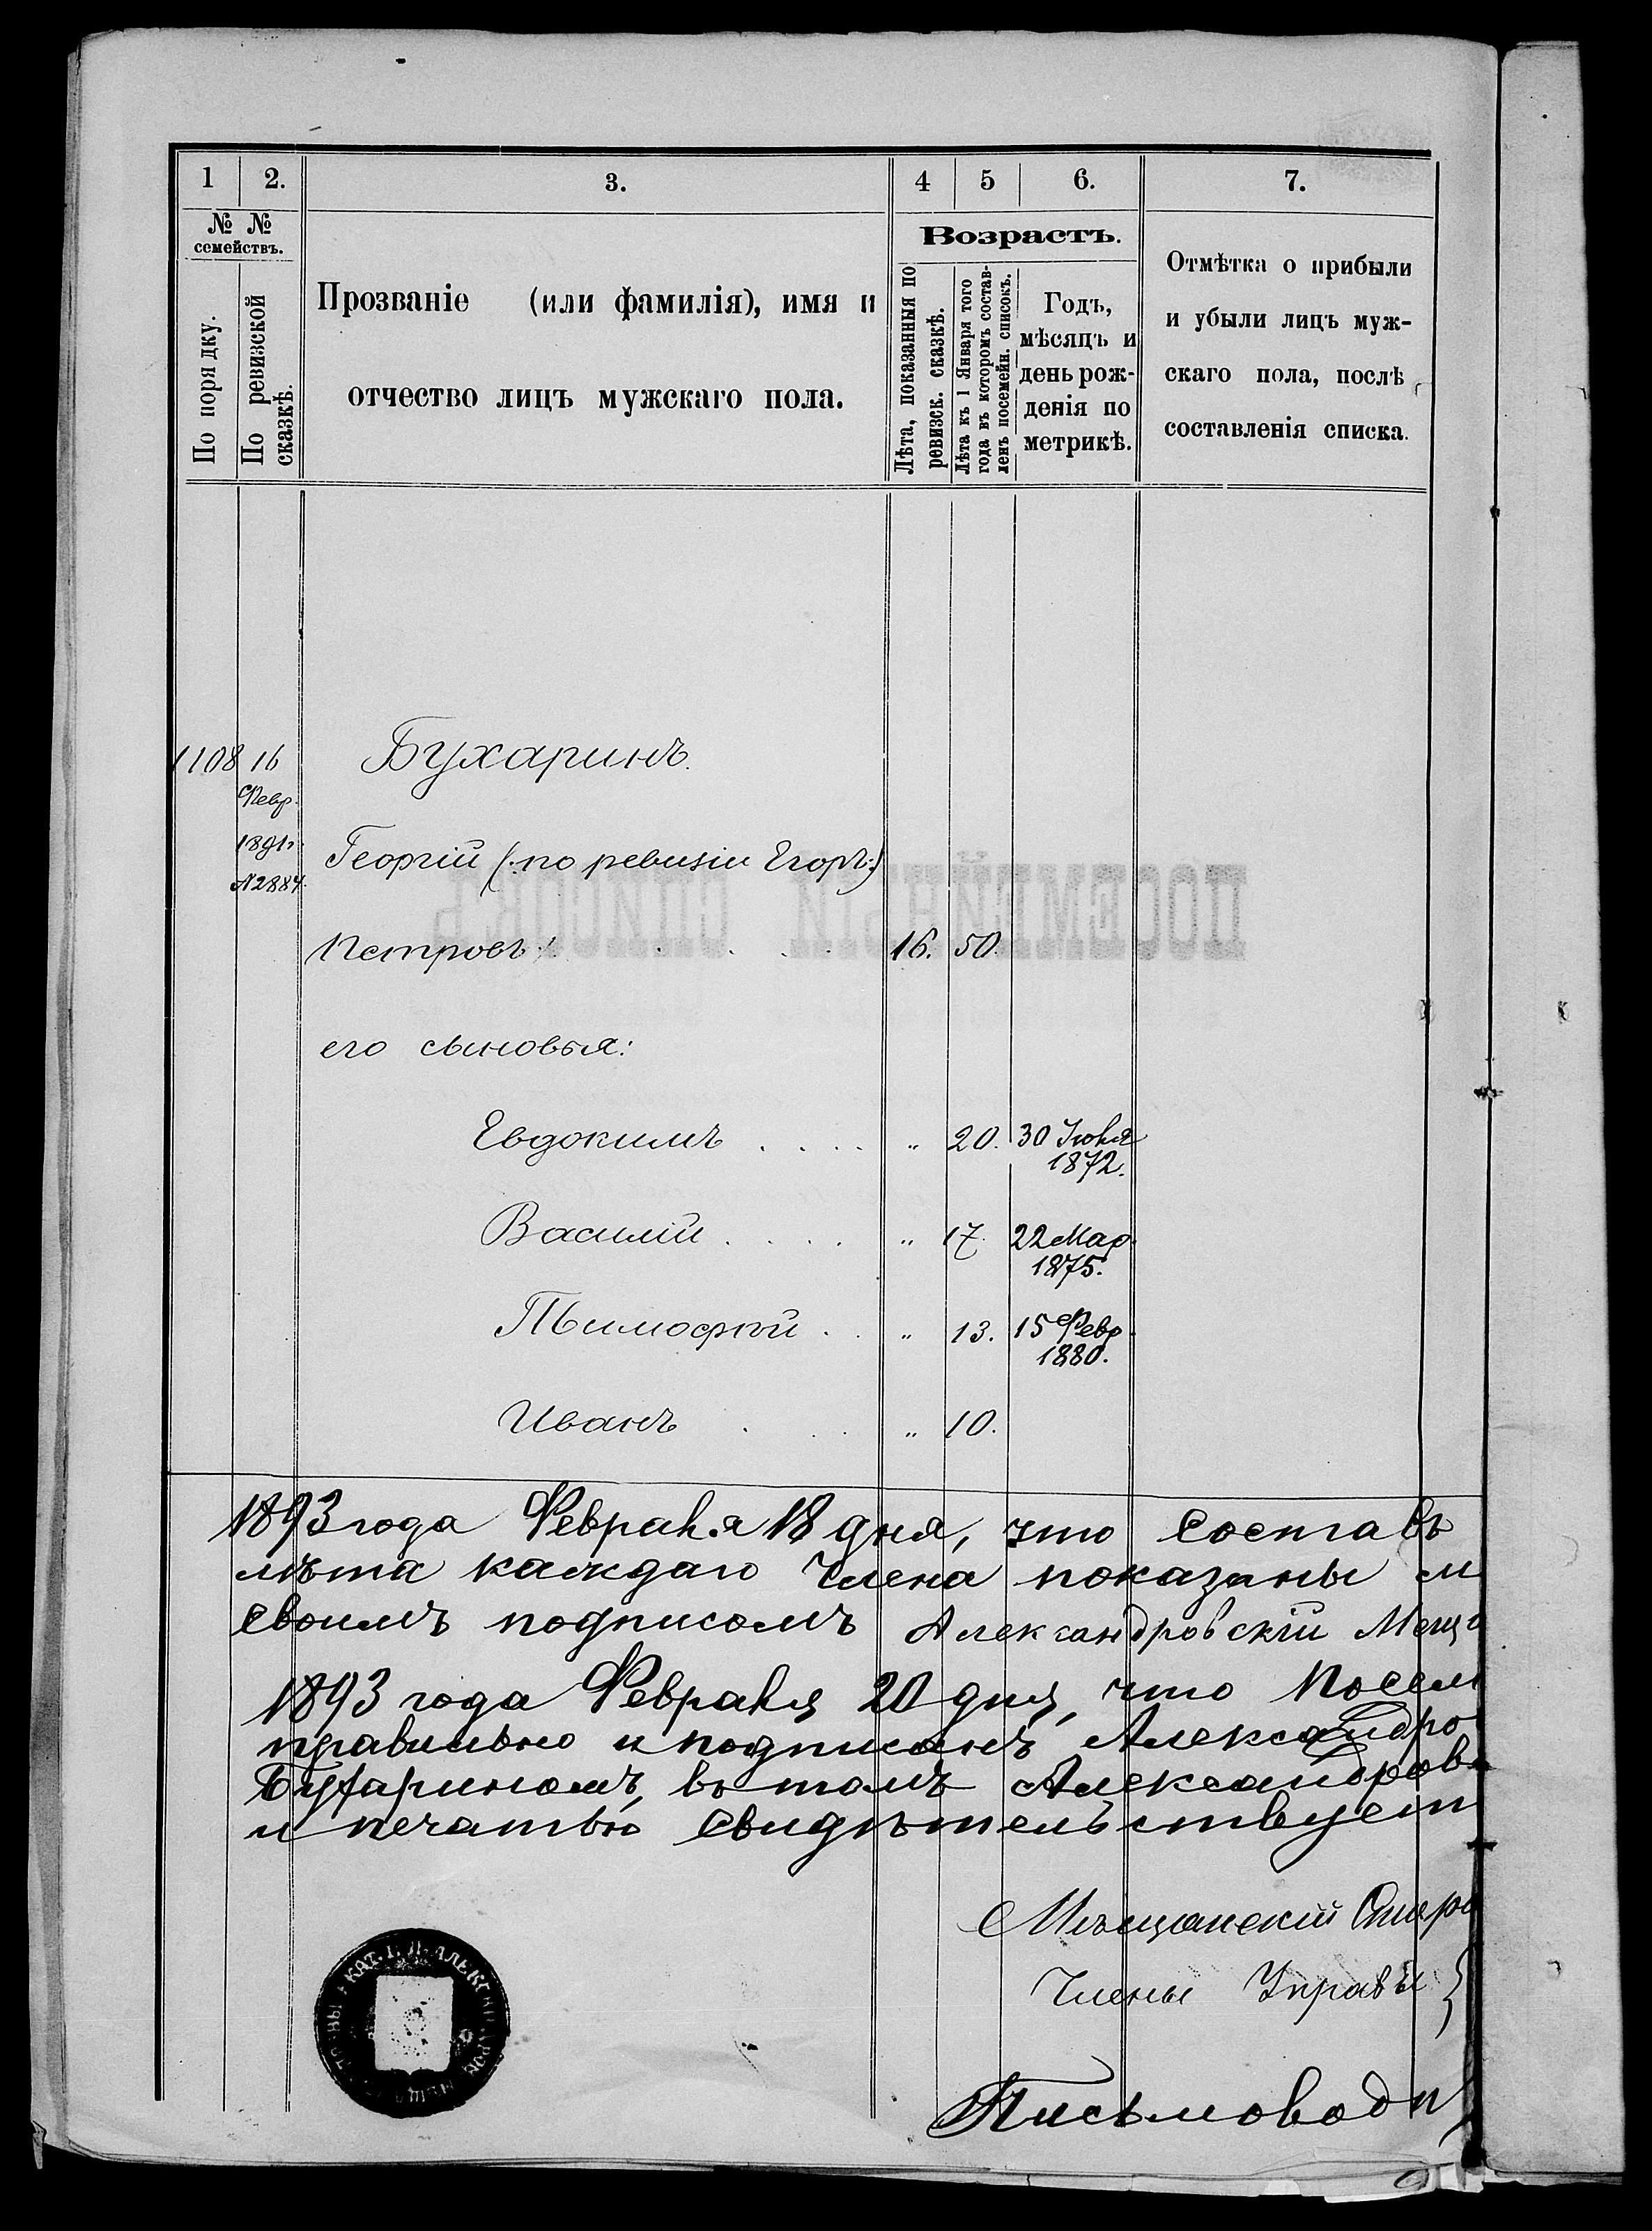 1 2. 3. 4 5 6. 7.
№ №
семействъ.
По порядку.
По ревизской
сказкѣ.
Прозваніе (или фамилія), имя и
отчество лицъ мужскаго пола.
Возрастъ.
Лѣта, показанныя по
ревизск. сказкѣ.
Лѣта къ 1 Января того
года въ которомъ состав-
ленъ посемейн. списокъ.
Годъ,
мѣсяцъ и
день рож-
денія по
метрикѣ.
Отмѣтка о прибыли
и убыли лицъ муж-
скаго пола, послѣ
составленія списка.
ПОСЕМЕЙНЫЙ СПИСОКЪ
1108 16 Бухаринъ.
Февр.
1891г.
№2884.
Георгій (:по ревизіи Егоръ:)
Петровъ: 16. 50.
его сыновья:
Евдокимъ . . . . " 20. 30 Іюня
1872.
Василій . . . . " 17. 22 Мар.
1875.
Тимофей . . " 13. 15 Февр.
1880.
Иванъ . . . " 10.
1893 года Февраля 18 дня, что составъ
лѣта каждаго члена показаны
своимъ подписомъ Александровскій Мещ
1893 года Февраля 20 дня, что Посем
правильно и подписанъ Александро
Бухаринымъ, въ томъ Александров
и печатью свидѣтельствует
Мѣщанскій Старо
Члены Управы }
Письмоводи